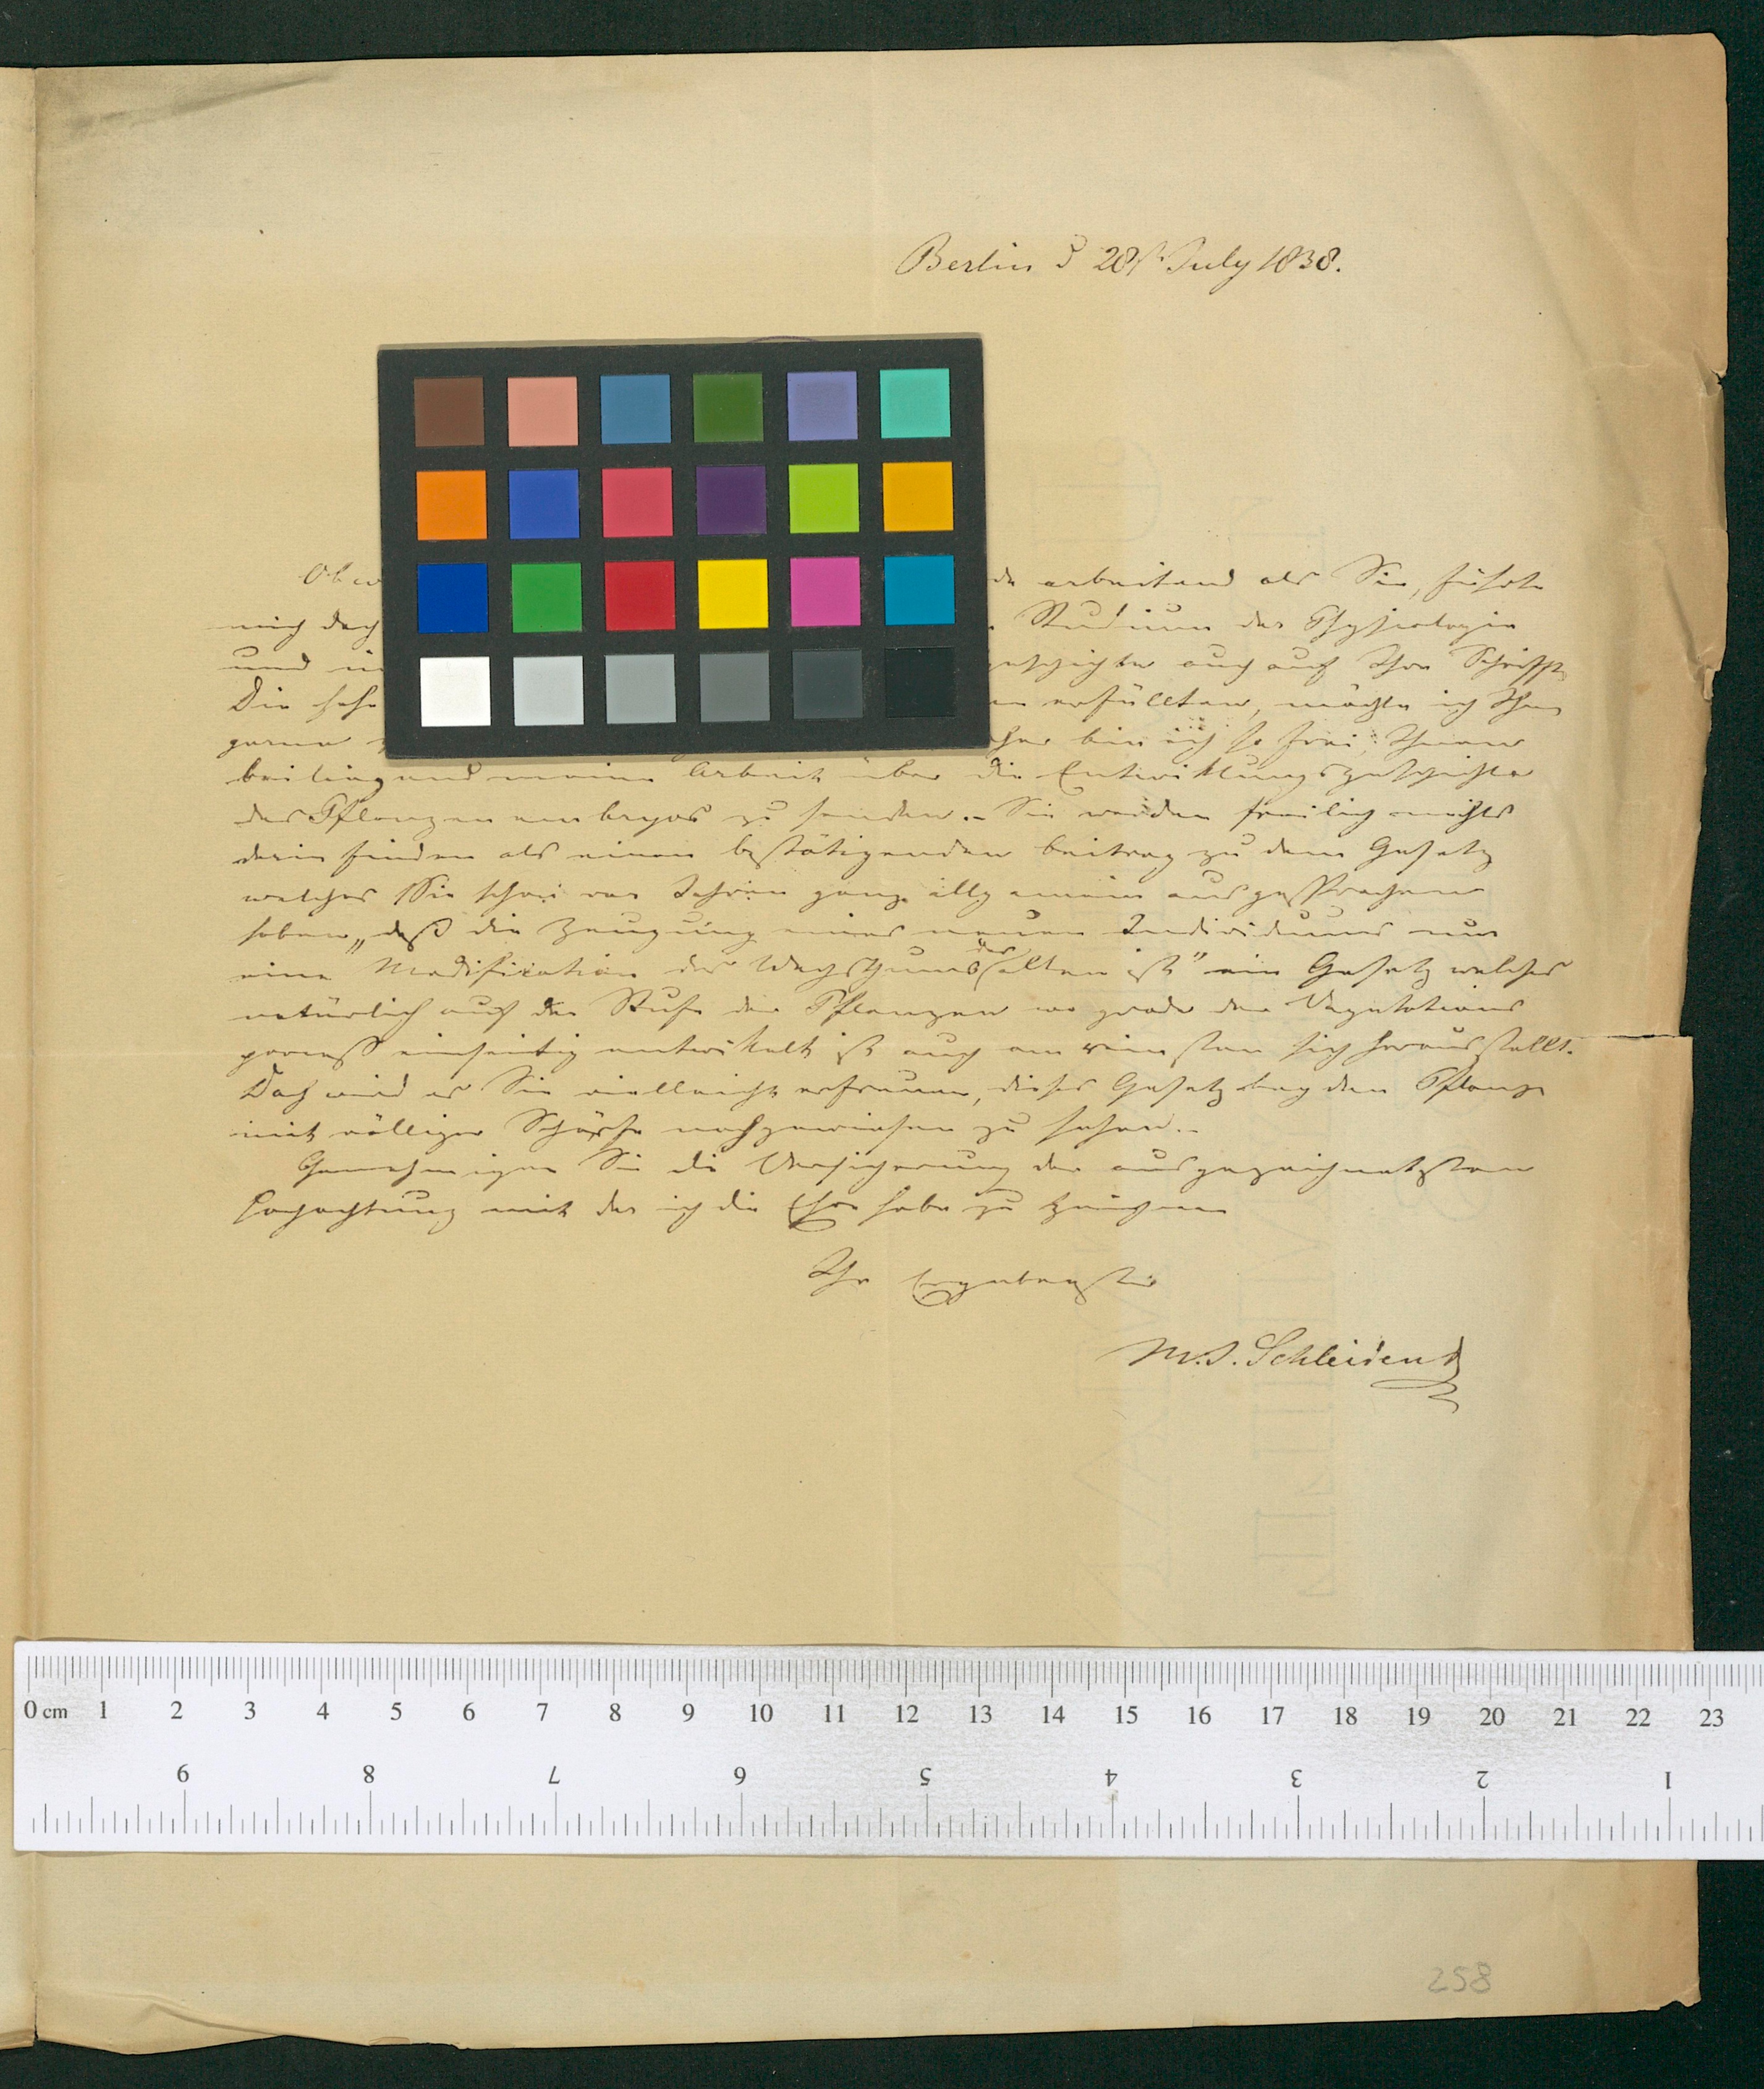 Berlin d 28st July 1838.
Obw de arbeitend als Sie, führte
mich doch Studium der Physiologie
und in geschichte auch auf Ihre Schriften
Die hohe en erfüllten, möchte ich Ihnen
gerne her bin ich so frei, Ihnen
beiliegend meine Arbeit über die Entwicklungsgeschichte
des Pflanzenembryos zu senden. – Sie werden freilich nichts
darin finden als einen bestätigenden Beitrag zu dem Gesetz
welches Sie schon vor Jahren ganz allgemein ausgesprochen
haben „daß die Zeugung eines neuen Individuums nur
eine Modification des Wachsthums des alten ist" ein Gesetz welches
natürlich auf der Stufe der Pflanzen wo grade der Vegetations
proceß einseitig entwickelt ist auch am reinsten sich herausstellt.
Doch wird es Sie vielleicht erfreuen, dieses Gesetz bey den Pflanze
mit völliger Schärfe nachgewiesen zu sehen. –
Genehmigen Sie die Versicherung der ausgezeichnetsten
Hochachtung mit der ich die Ehre habe zu zeichnen
Ihr Ergebenster
M. J. Schleiden D
0 cm 1 2 3 4 5 6 7 8 9 10 11 12 13 14 15 16 17 18 19 20 21 22 23
9 8 7 6 5 4 3 2 1
258